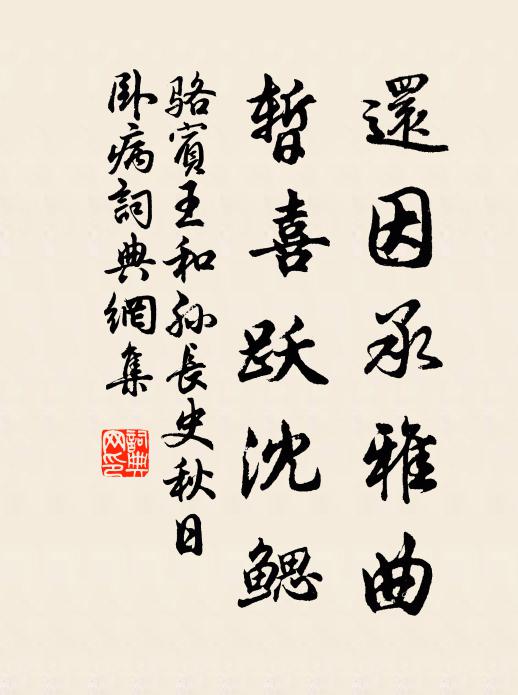 還因承雅曲
暫喜跃沈鰓
骆賓王和孙長史秋日
卧病詞典網集
詞典网印